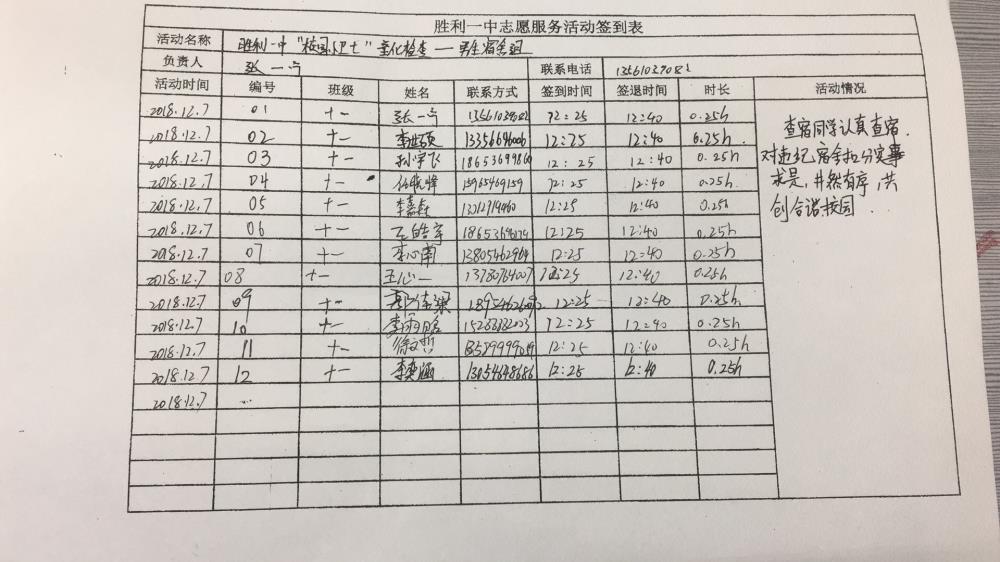 胜利一中志愿服务活动签到表
活动名称 胜利一中"校园卫士"量化检查—男生宿舍组
负责人 张一宁 联系电话
活动时间 编号 班级 姓名 联系方式 签到时间 签退时间 时长 活动情况
2018.12.7 01 十一 张一宁 12:25 12:40 0.25h
2018.12.7 02 十一 13356696006 12:25 12:40 0.25h
2018.12.7 03 十一 孙宇飞 12:25 12:40 0.25h
2018.12.7 04 十一 15965469159 12:25 12:40 0.25h
2018.12.7 05 十一 12:25 12:40 0.25h
2018.12.7 06 十一 王皓宇 12:25 12:40 0.25h
2018.12.7 07 十一 李心南 13805462964 12:25 12:40 0.25h
2018.12.7 08 十一 王心一 13780764007 12:25 12:40 0.25h
2018.12.7 09 十一 12:25 12:40 0.25h
2018.12.7 10 十一 12:25 12:40 0.25h
2018.12.7 11 十一 徐文哲 12:25 12:40 0.25h
2018.12.7 12 十一 李奕涵 13054648686 12:25 12:40 0.25h
2018.12.7 ...
查宿同学认真查宿.
对违纪宿舍扣分实事
求是,井然有序,共
创合谐校园.